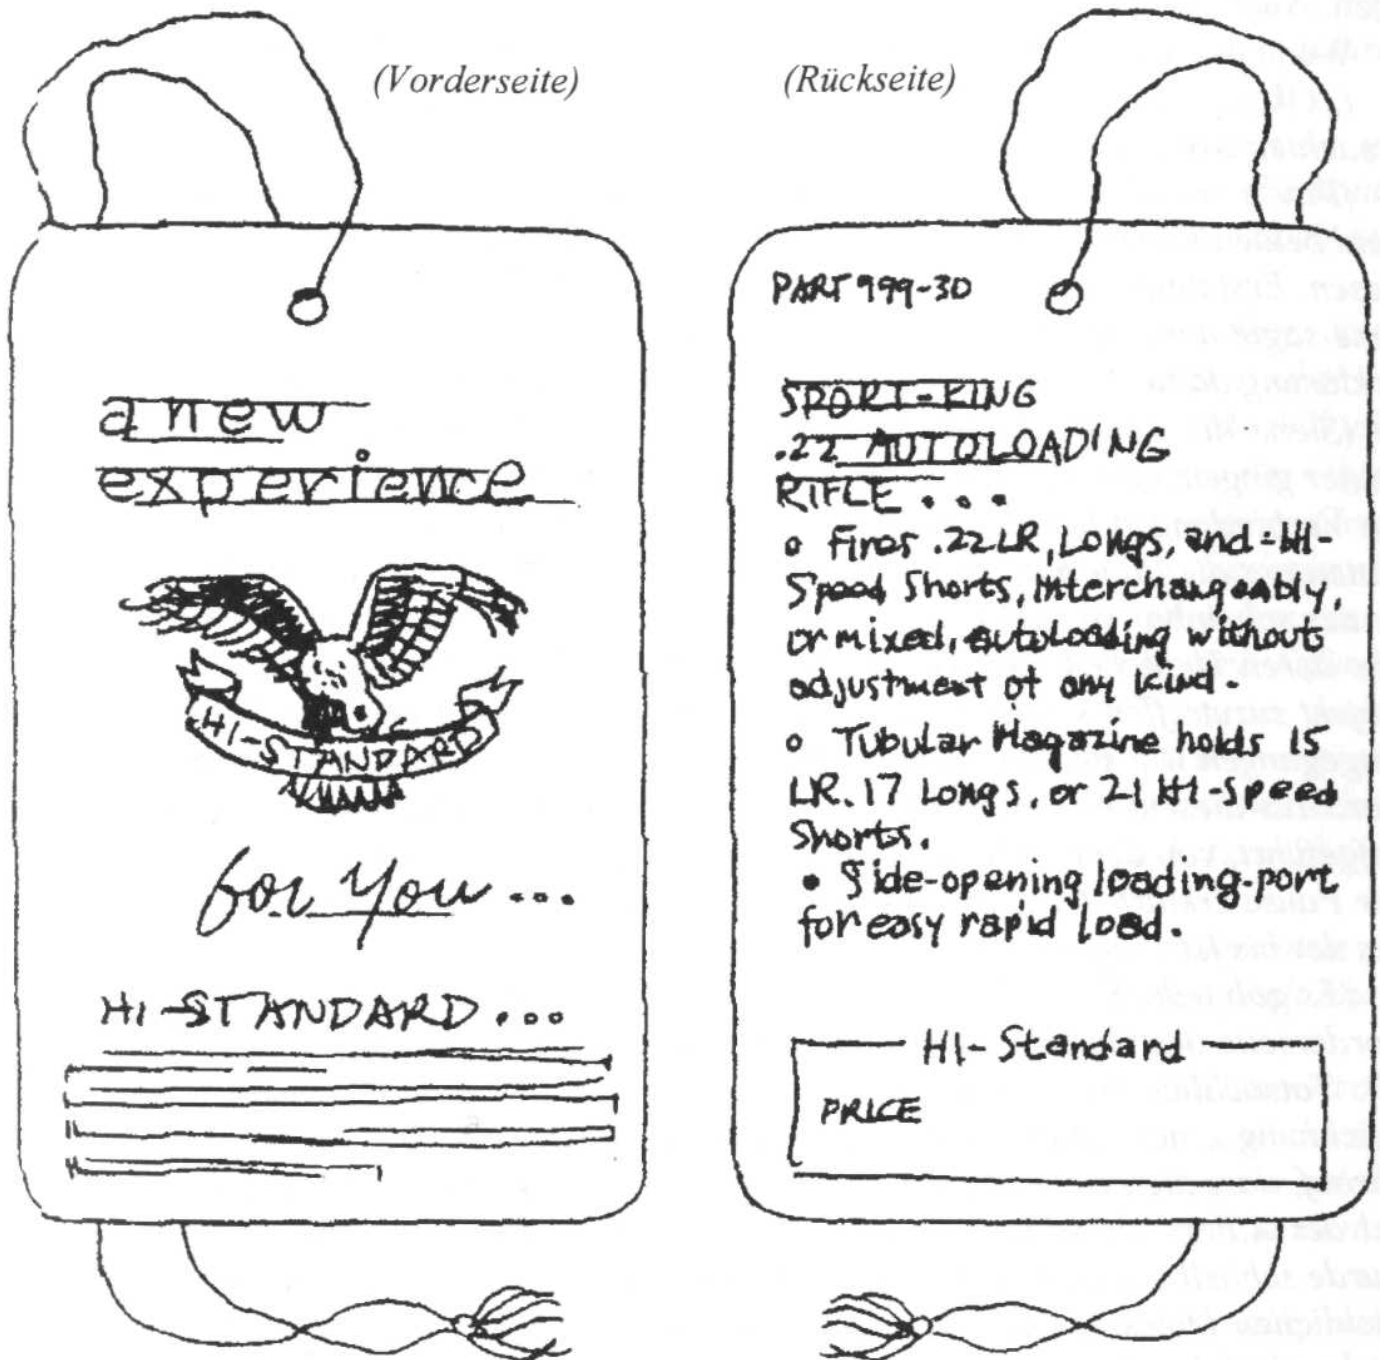 (Vorderseite)
a new
experience
HI-STANDARD
for You...
HI-STANDARD...
(Rückseite)
PART 999-30
SPORT-KING
.22 AUTOLOADING
RIFLE...
• Fires .22 LR, Longs, and HI-
Speed Shorts, interchangeably,
or mixed, autoloading without
adjustment of any kind.
• Tubular Magazine holds 15
LR. 17 Longs, or 21 HI-Speed
Shorts.
• Side-opening loading-port
for easy rapid load.
HI-Standard
PRICE